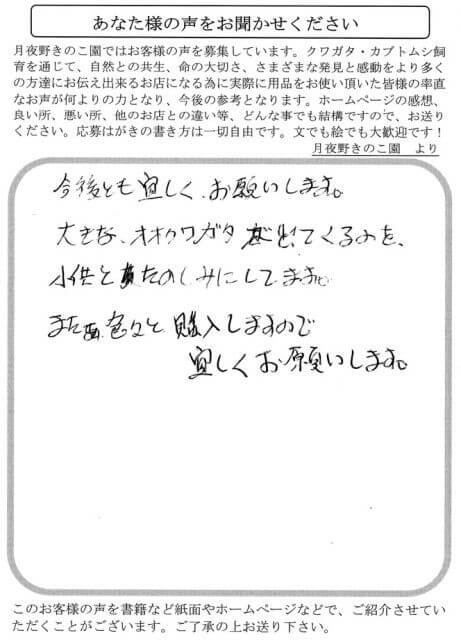 あなた様の声をお聞かせください
月夜野きのこ園ではお客様の声を募集しています。クワガタ・カブトムシ飼
育を通じて、自然との共生、命の大切さ、さまざまな発見と感動をより多く
の方達にお伝え出来るお店になる為に実際に用品をお使い頂いた皆様の率直
なお声が何よりの力となり、今後の参考となります。ホームページの感想、
良い所、悪い所、他のお店との違い等、どんな事でも結構ですので、お送り
ください。応募はがきの書き方は一切自由です。文でも絵でも大歓迎です！
月夜野きのこ園 より
今後とも宜しくお願いします。
大きな、オオクワガタが出てくるのを、
小供とたのしみにしてます。
また色々と購入しますので
宜しくお願いします。
このお客様の声を書籍など紙面やホームページなどで、ご紹介させていた
だくことがございます。ご了承の上お送り下さい。